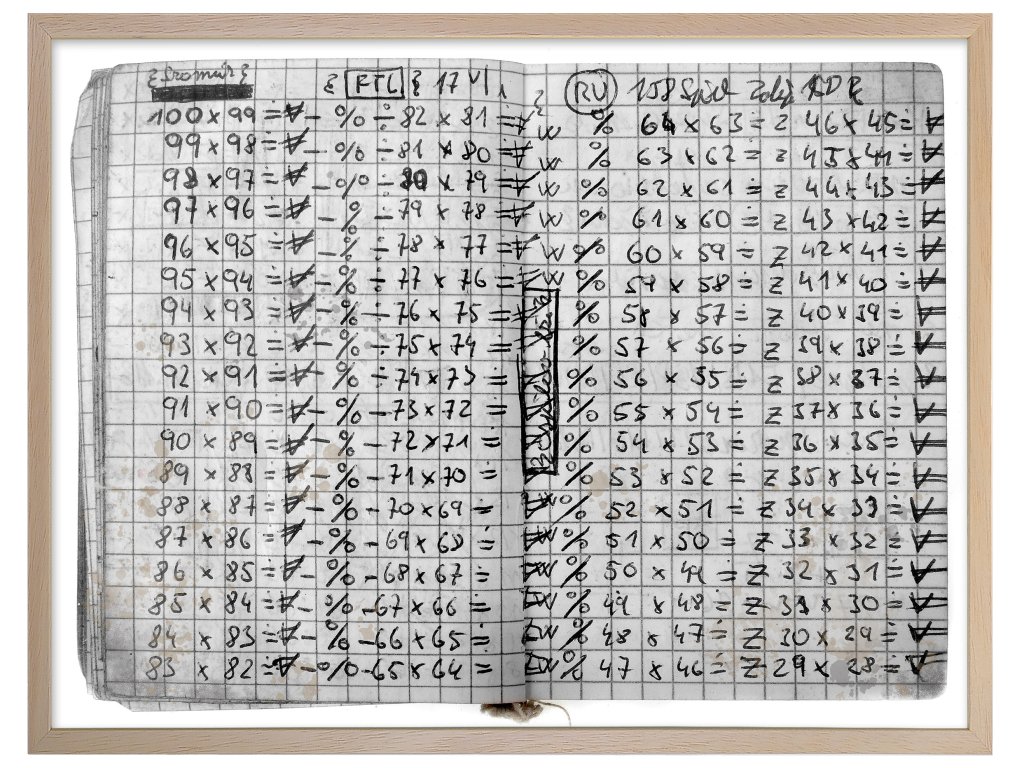 { RTL } 17 VI
RU 158
100 x 99 ÷ ∀ – % ÷ 82 x 81 ÷ ∀ W % 64 x 63 ÷ z 46 x 45 ÷ ∀
99 x 98 ÷ ∀ – % ÷ 81 x 80 ÷ ∀ W % 63 x 62 ÷ z 45 x 44 ÷ ∀
98 x 97 ÷ ∀ – % ÷ 80 x 79 ÷ ∀ W % 62 x 61 ÷ z 44 x 43 ÷ ∀
97 x 96 ÷ ∀ – % ÷ 79 x 78 ÷ ∀ W % 61 x 60 ÷ z 43 x 42 ÷ ∀
96 x 95 ÷ ∀ – % ÷ 78 x 77 ÷ ∀ W % 60 x 59 ÷ z 42 x 41 ÷ ∀
95 x 94 ÷ ∀ – % ÷ 77 x 76 ÷ ∀ W % 59 x 58 ÷ z 41 x 40 ÷ ∀
94 x 93 ÷ ∀ – % ÷ 76 x 75 ÷ ∀ % 58 x 57 ÷ z 40 x 39 ÷ ∀
93 x 92 ÷ ∀ – % ÷ 75 x 74 ÷ % 57 x 56 ÷ z 39 x 38 ÷ ∀
92 x 91 ÷ ∀ – % ÷ 74 x 73 ÷ % 56 x 55 ÷ z 38 x 37 ÷ ∀
91 x 90 ÷ ∀ – % – 73 x 72 ÷ % 55 x 54 ÷ z 37 x 36 ÷ ∀
90 x 89 ÷ ∀ – % – 72 x 71 ÷ % 54 x 53 ÷ z 36 x 35 ÷ ∀
89 x 88 ÷ ∀ – % – 71 x 70 ÷ % 53 x 52 ÷ z 35 x 34 ÷ ∀
88 x 87 ÷ ∀ – % – 70 x 69 ÷ W % 52 x 51 ÷ z 34 x 33 ÷ ∀
87 x 86 ÷ ∀ – % – 69 x 68 ÷ W % 51 x 50 ÷ z 33 x 32 ÷ ∀
86 x 85 ÷ ∀ – % – 68 x 67 ÷ W % 50 x 49 ÷ z 32 x 31 ÷ ∀
85 x 84 ÷ ∀ – % – 67 x 66 ÷ W % 49 x 48 ÷ z 31 x 30 ÷ ∀
84 x 83 ÷ ∀ – % – 66 x 65 ÷ W % 48 x 47 ÷ z 30 x 29 ÷ ∀
83 x 82 ÷ ∀ – % – 65 x 64 ÷ W % 47 x 46 ÷ z 29 x 28 ÷ ∀